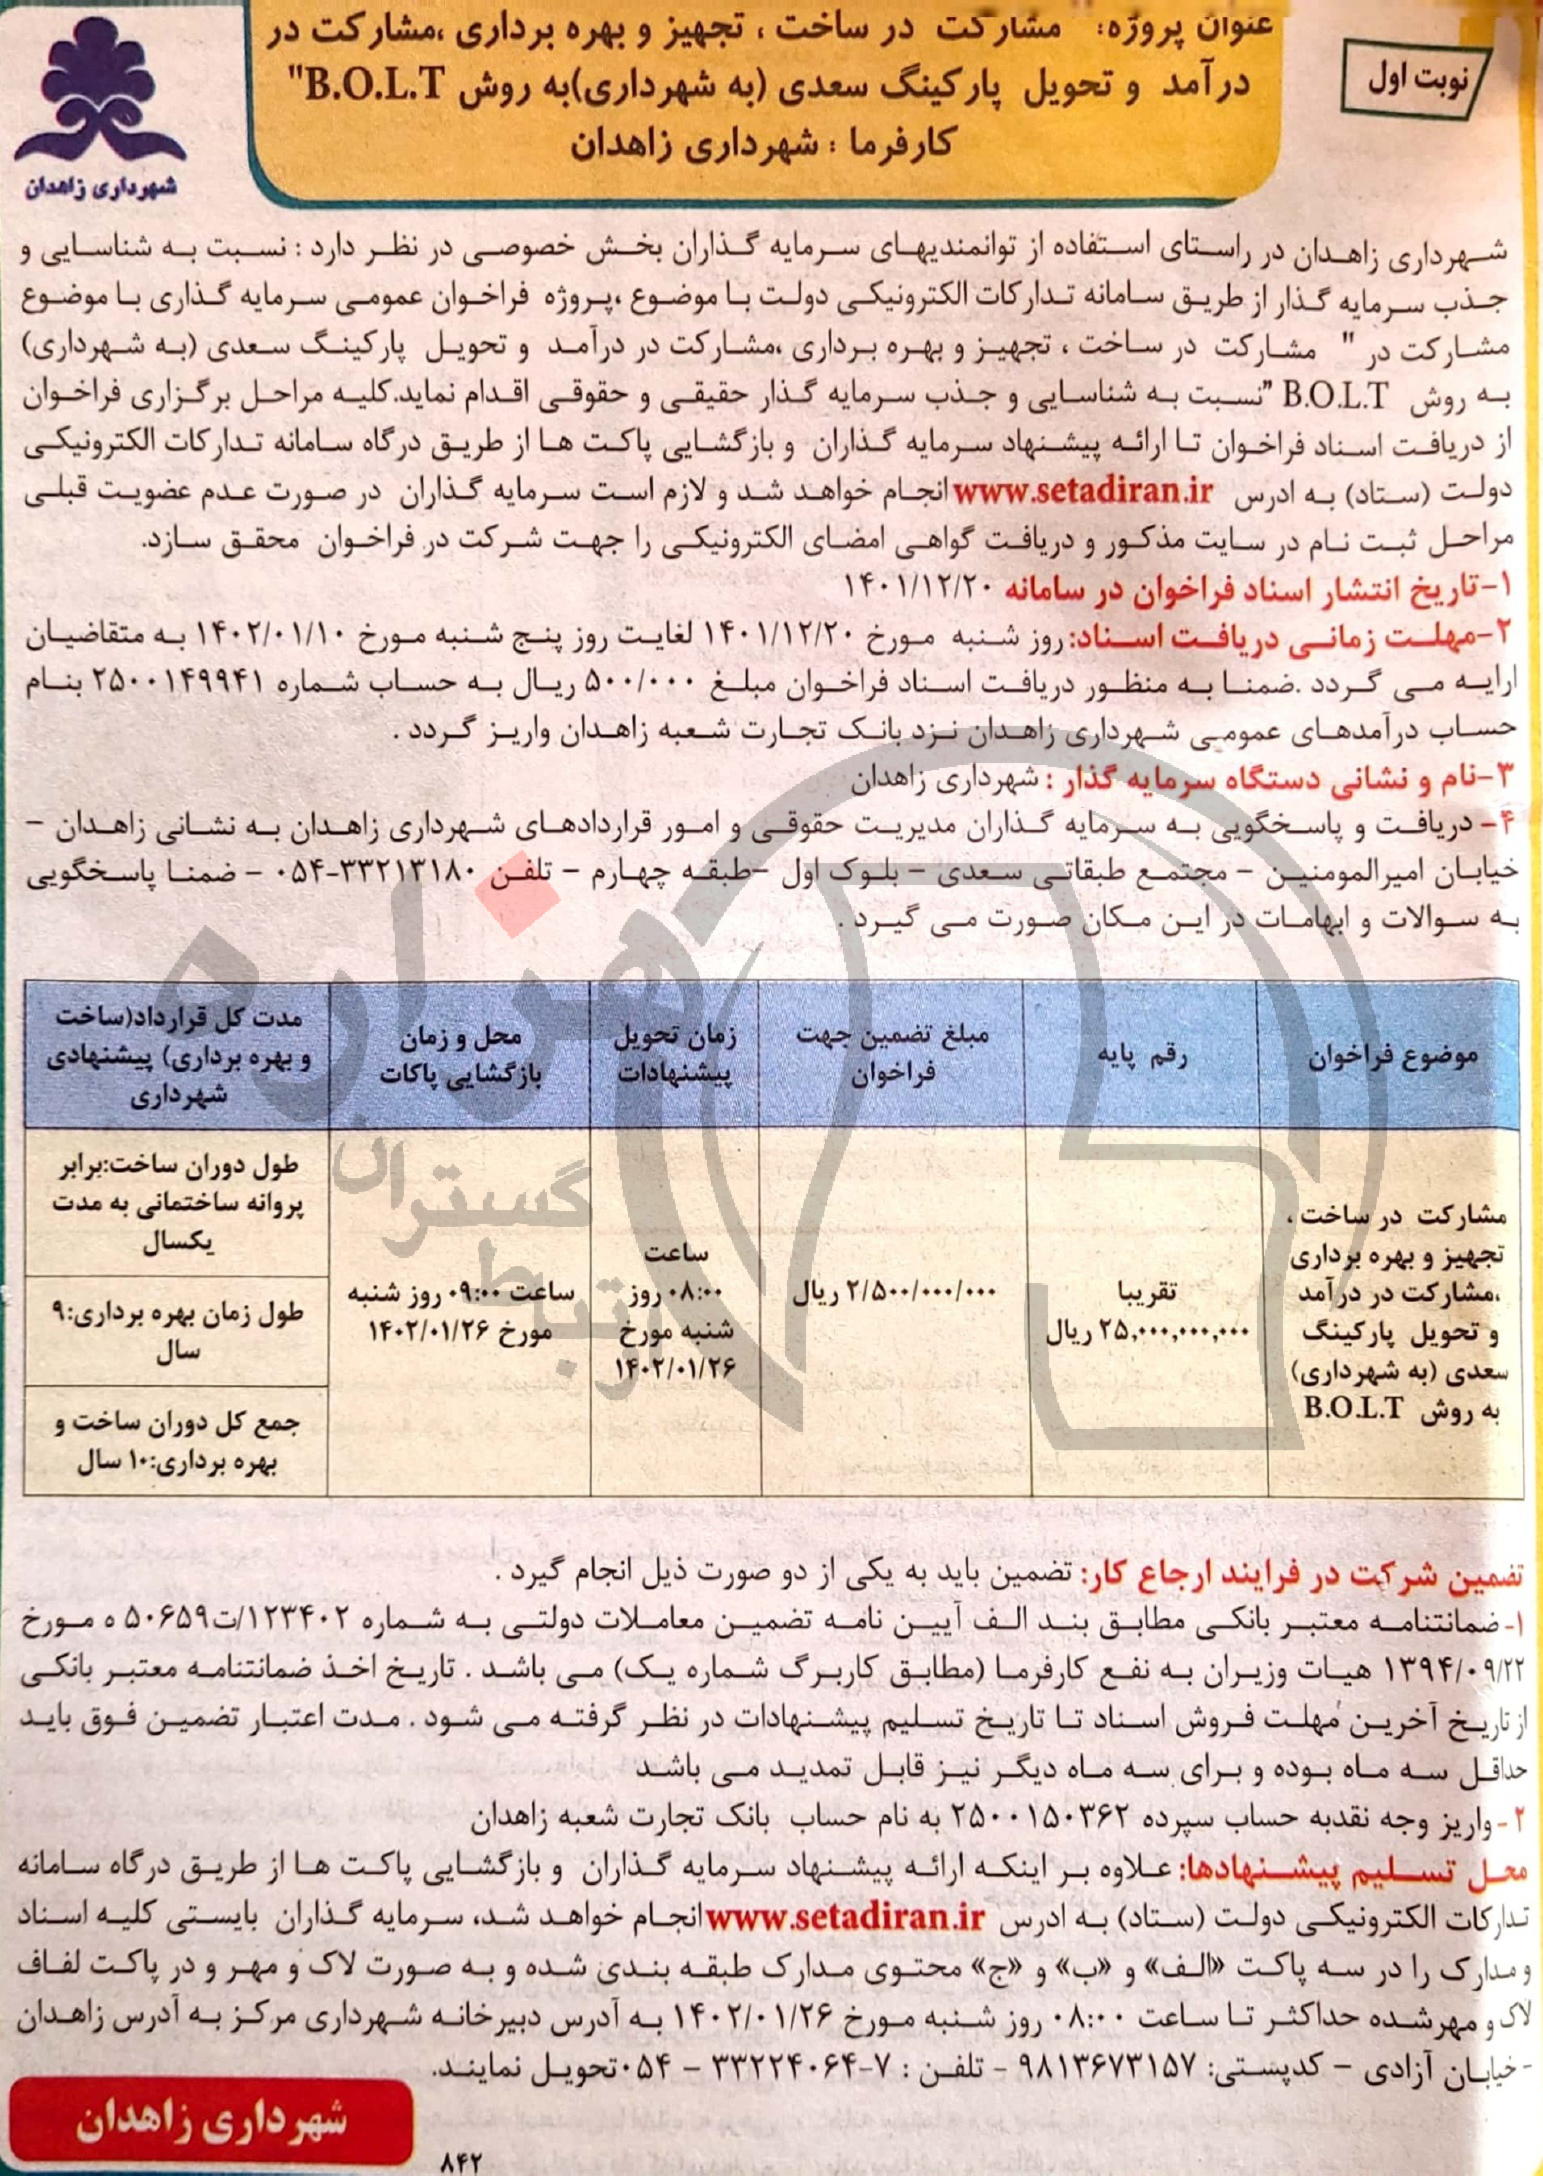 نوبت اول
عنوان پروژه: مشارکت در ساخت ، تجهیز و بهره برداری ،مشارکت در
درآمد و تحویل پارکینگ سعدی (به شهرداری)به روش B.O.L.T"
کارفرما : شهرداری زاهدان
شهرداری زاهدان
شهرداری زاهدان در راستای استفاده از توانمندیهای سرمایه گذاران بخش خصوصی در نظر دارد : نسبت به شناسایی و
جذب سرمایه گذار از طریق سامانه تدارکات الکترونیکی دولت با موضوع ،پروژه فراخوان عمومی سرمایه گذاری با موضوع
مشارکت در " مشارکت در ساخت ، تجهیز و بهره برداری ،مشارکت در درآمد و تحویل پارکینگ سعدی (به شهرداری)
به روش B.O.L.T "نسبت به شناسایی و جذب سرمایه گذار حقیقی و حقوقی اقدام نماید.کلیه مراحل برگزاری فراخوان
از دریافت اسناد فراخوان تا ارائه پیشنهاد سرمایه گذاران و بازگشایی پاکت ها از طریق درگاه سامانه تدارکات الکترونیکی
دولت (ستاد) به ادرس www.setadiran.ir انجام خواهد شد و لازم است سرمایه گذاران در صورت عدم عضویت قبلی
مراحل ثبت نام در سایت مذکور و دریافت گواهی امضای الکترونیکی را جهت شرکت در فراخوان محقق سازد.
۱-تاریخ انتشار اسناد فراخوان در سامانه ۱۴۰۱/۱۲/۲۰
۲-مهلت زمانی دریافت اسناد: روز شنبه مورخ ۱۴۰۱/۱۲/۲۰ لغایت روز پنج شنبه مورخ ۱۴۰۲/۰۱/۱۰ به متقاضیان
ارایه می گردد .ضمنا به منظور دریافت اسناد فراخوان مبلغ ۵۰۰/۰۰۰ ریال به حساب شماره ۲۵۰۰۱۴۹۹۴۱ بنام
حساب درآمدهای عمومی شهرداری زاهدان نزد بانک تجارت شعبه زاهدان واریز گردد .
۳-نام و نشانی دستگاه سرمایه گذار : شهرداری زاهدان
۴- دریافت و پاسخگویی به سرمایه گذاران مدیریت حقوقی و امور قراردادهای شهرداری زاهدان به نشانی زاهدان –
خیابان امیرالمومنین – مجتمع طبقاتی سعدی – بلوک اول –طبقه چهارم – تلفن ۳۳۲۱۳۱۸۰-۰۵۴ – ضمنا پاسخگویی
به سوالات و ابهامات در این مکان صورت می گیرد .
هزاره
گستران
ارتباط
موضوع فراخوان
رقم پایه
مبلغ تضمین جهت
فراخوان
زمان تحویل
پیشنهادات
محل و زمان
بازگشایی پاکات
مدت کل قرارداد(ساخت
و بهره برداری) پیشنهادی
شهرداری
مشارکت در ساخت ،
تجهیز و بهره برداری
،مشارکت در درآمد
و تحویل پارکینگ
سعدی (به شهرداری)
به روش B.O.L.T
تقریبا
۲۵,۰۰۰,۰۰۰,۰۰۰ ریال
۲/۵۰۰/۰۰۰/۰۰۰ ریال
ساعت
۰۸:۰۰ روز
شنبه مورخ
۱۴۰۲/۰۱/۲۶
ساعت ۰۹:۰۰ روز شنبه
مورخ ۱۴۰۲/۰۱/۲۶
طول دوران ساخت:برابر
پروانه ساختمانی به مدت
یکسال
طول زمان بهره برداری:۹
سال
جمع کل دوران ساخت و
بهره برداری:۱۰ سال
تضمین شرکت در فرایند ارجاع کار: تضمین باید به یکی از دو صورت ذیل انجام گیرد .
۱- ضمانتنامه معتبر بانکی مطابق بند الف آیین نامه تضمین معاملات دولتی به شماره ۱۲۳۴۰۲/ت۵۰۶۵۹ ه مورخ
۱۳۹۴/۰۹/۲۲ هیات وزیران به نفع کارفرما (مطابق کاربرگ شماره یک) می باشد . تاریخ اخذ ضمانتنامه معتبر بانکی
از تاریخ آخرین مهلت فروش اسناد تا تاریخ تسلیم پیشنهادات در نظر گرفته می شود . مدت اعتبار تضمین فوق باید
حداقل سه ماه بوده و برای سه ماه دیگر نیز قابل تمدید می باشد
۲- واریز وجه نقدبه حساب سپرده ۲۵۰۰۱۵۰۳۶۲ به نام حساب بانک تجارت شعبه زاهدان
محل تسلیم پیشنهادها: علاوه بر اینکه ارائه پیشنهاد سرمایه گذاران و بازگشایی پاکت ها از طریق درگاه سامانه
تدارکات الکترونیکی دولت (ستاد) به ادرس www.setadiran.ir انجام خواهد شد، سرمایه گذاران بایستی کلیه اسناد
و مدارک را در سه پاکت «الف» و «ب» و «ج» محتوی مدارک طبقه بندی شده و به صورت لاک و مهر و در پاکت لفاف
لاک و مهرشده حداکثر تا ساعت ۰۸:۰۰ روز شنبه مورخ ۱۴۰۲/۰۱/۲۶ به آدرس دبیرخانه شهرداری مرکز به آدرس زاهدان
- خیابان آزادی – کدپستی: ۹۸۱۳۶۷۳۱۵۷ – تلفن : ۷-۳۳۲۲۴۰۶۴ – ۰۵۴ تحویل نمایند.
شهرداری زاهدان
۸۴۲